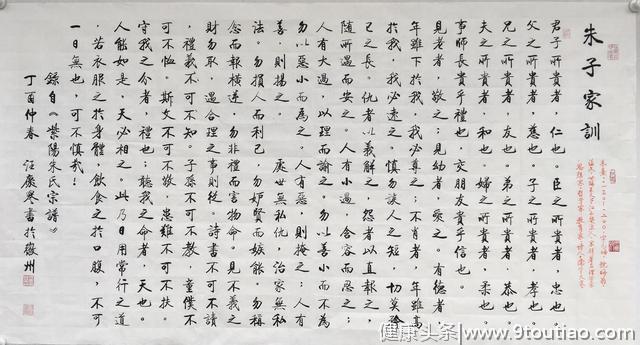 朱子家訓
君子所貴者，仁也。臣之所貴者，忠也。
父之所貴者，慈也。子之所貴者，孝也。
兄之所貴者，友也。弟之所貴者，恭也。
夫之所貴者，和也。婦之所貴者，柔也。
事師長貴乎禮也，交朋友貴乎信也。
見老者，敬之；見幼者，愛之。有德者，
年雖下於我，我必尊之；不肖者，年雖高
於我，我必遠之。慎勿談人之短，切莫矜
己之長。仇者以義解之，怨者以直報之，
隨所遇而安之。人有小過，含容而忍之；
人有大過，以理而諭之。勿以善小而不為，
勿以惡小而為之。人有惡，則掩之；人有
善，則揚之。處世無私仇，治家無私
法。勿損人而利己，勿妒賢而嫉能。勿稱
忿而報橫逆，勿非禮而害物命。見不義之
財勿取，遇合理之事則從。詩書不可不讀
，禮義不可不知。子孫不可不教，童僕不
可不恤。斯文不可不敬，患難不可不扶。
守我之分者，禮也；聽我之命者，天也。
人能如是，天必相之。此乃日用常行之道
，若衣服之於身體，飲食之於口腹，不可
一日無也，可不慎哉！
錄自《紫陽朱氏宗譜》
丁酉仲春 汪慶 書於徽州
健康头条 www.9toutiao.com